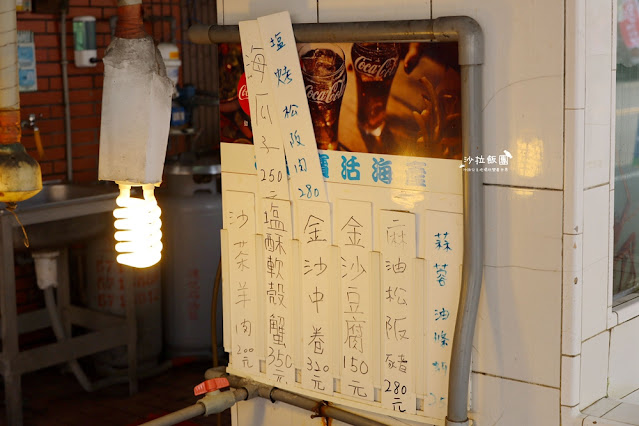 塩烤松阪肉280
海瓜子250元
Coca-Cola
Coca-Cola
活海
沙茶羊肉200元
塩酥軟殼蟹350元
金沙中卷320元
金沙豆腐150元
麻油松阪豬280元
蒜蓉油條
沙拉飯田